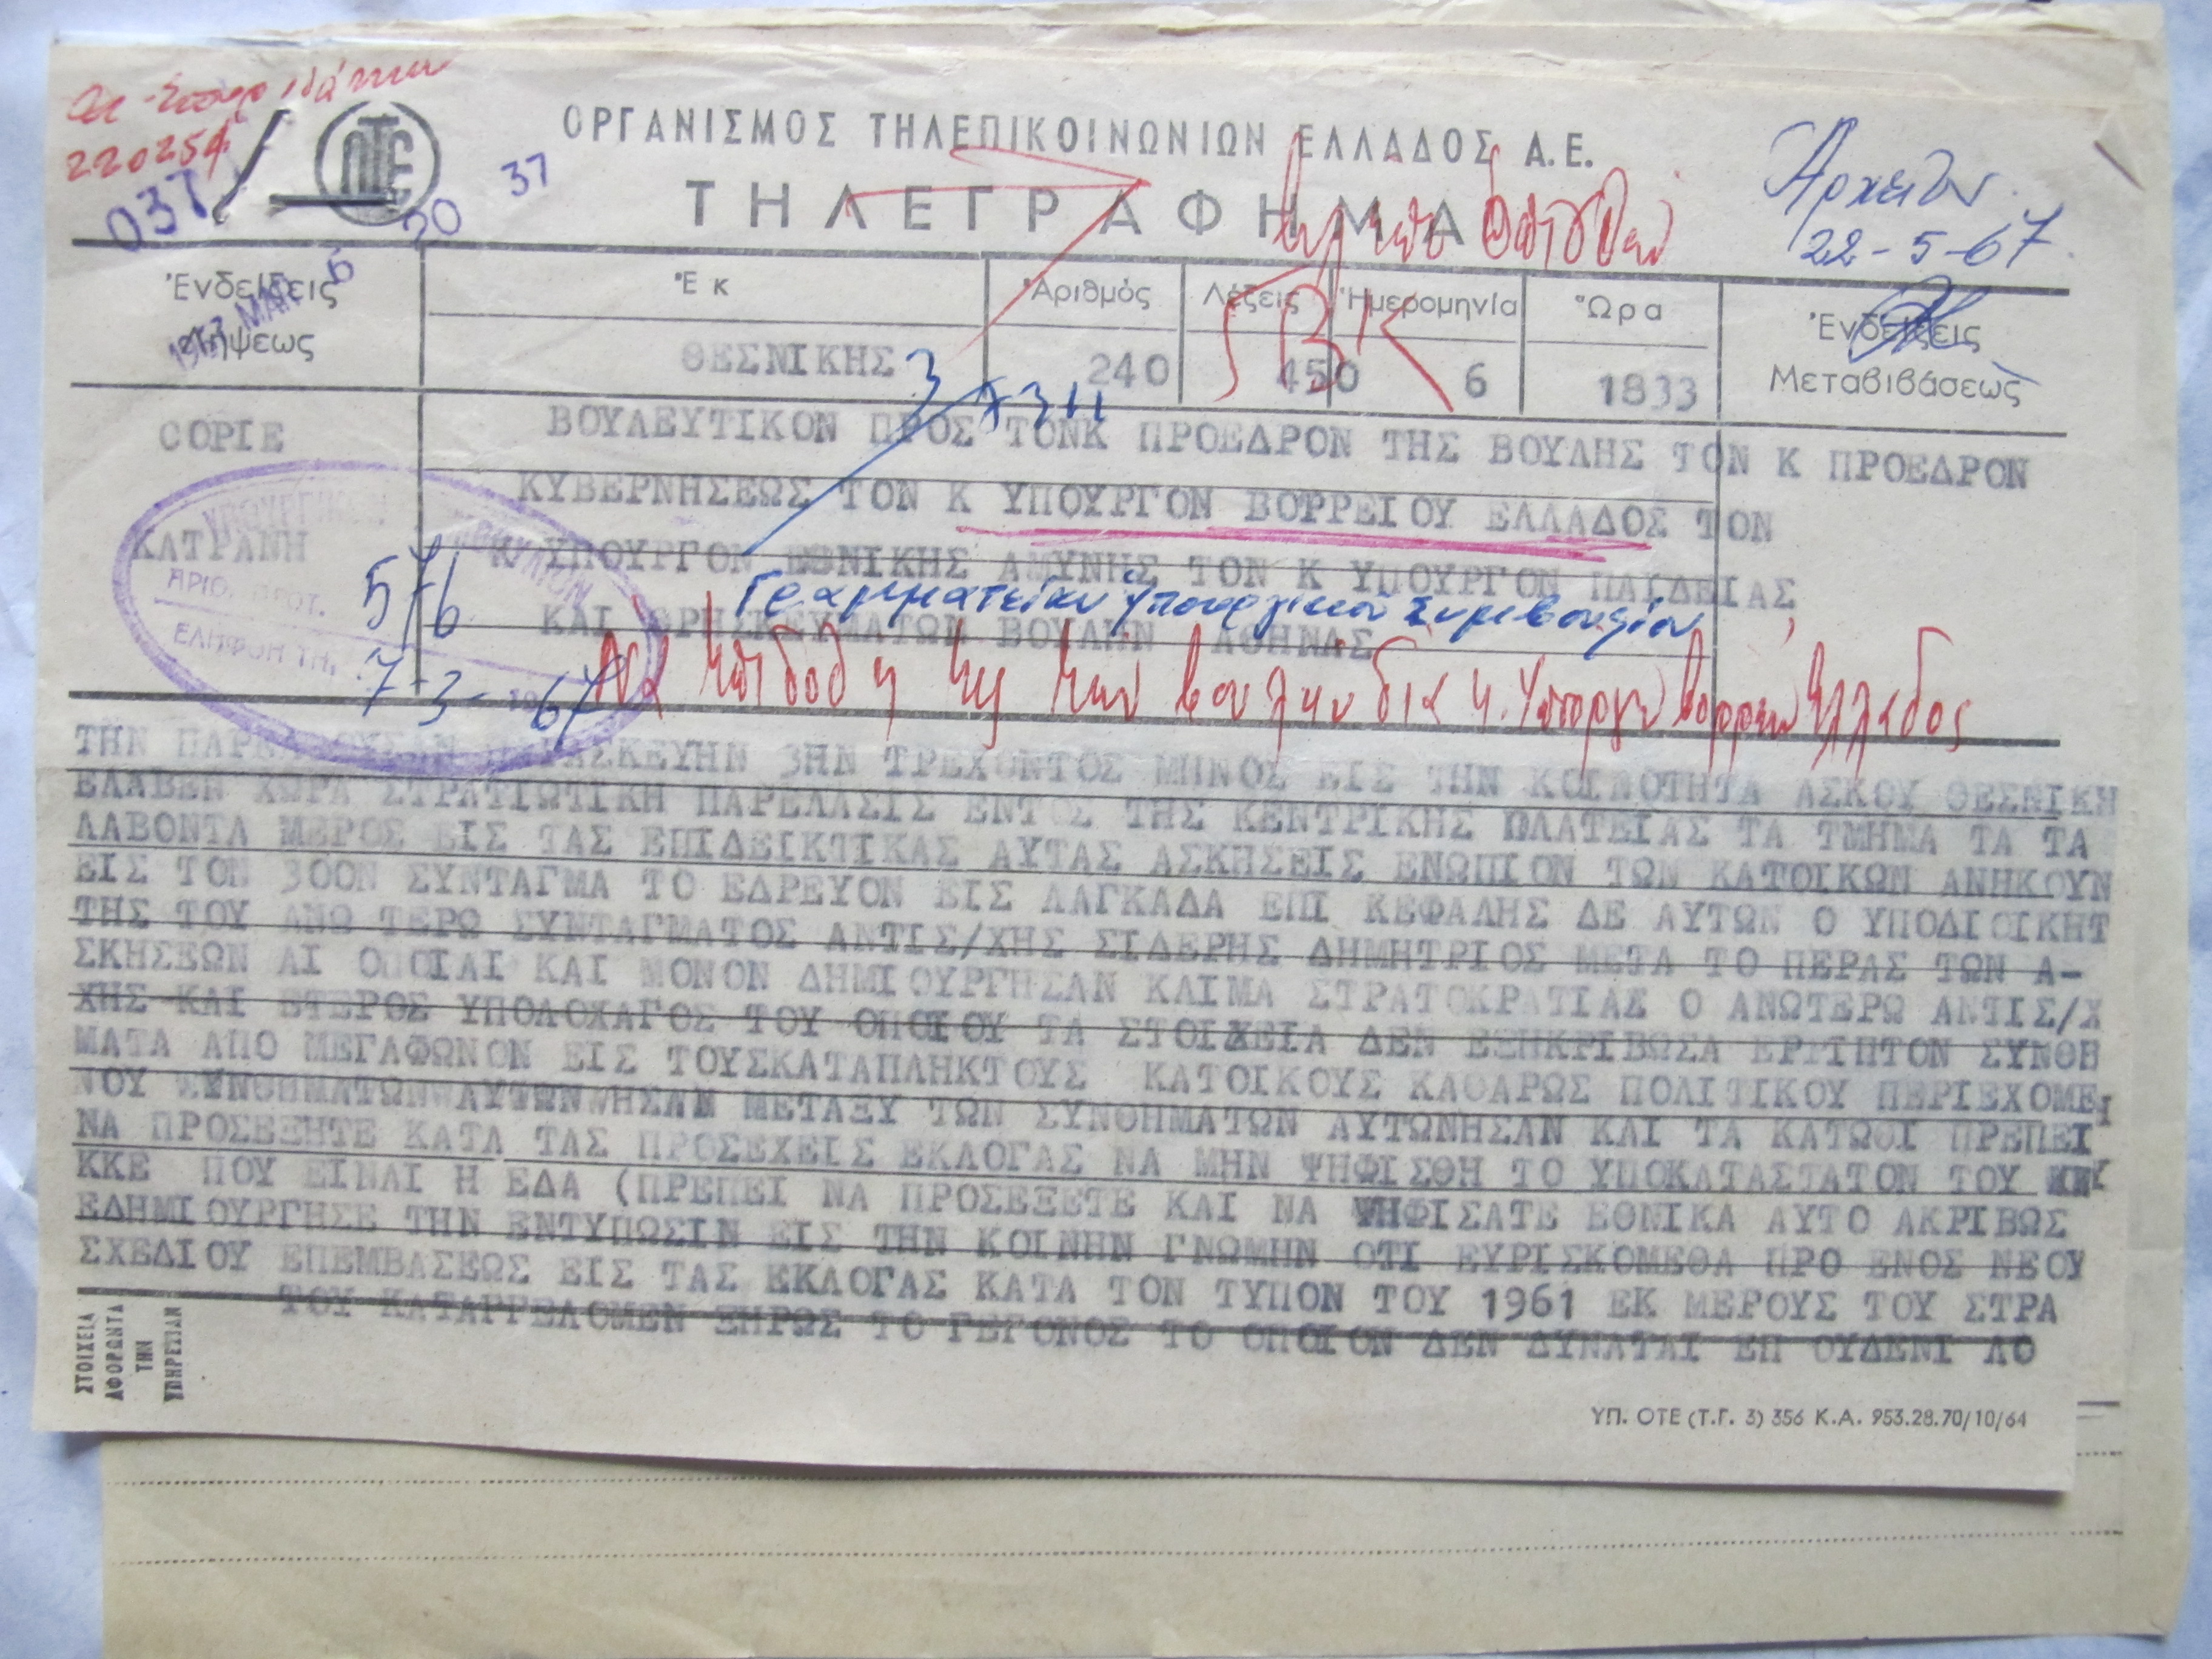 220254
ΟΤΕ
ΟΡΓΑΝΙΣΜΟΣ ΤΗΛΕΠΙΚΟΙΝΩΝΙΩΝ ΕΛΛΑΔΟΣ Α.Ε.
037
20 37
ΤΗΛΕΓΡΑΦΗΜΑ
Ἀρχεῖον
22-5-67
Ἐνδείξεις Λήψεως
1967 ΜΑΡ 6
Ἐκ
Ἀριθμός
Λέξεις
Ἡμερομηνία
Ὥρα
Ἐνδείξεις Μεταβιβάσεως
ΘΕΣΝΙΚΗΣ 240 450 6 1833
COPIE
ΒΟΥΛΕΥΤΙΚΟΝ ΠΡΟΣ ΤΟΝΚ ΠΡΟΕΔΡΟΝ ΤΗΣ ΒΟΥΛΗΣ ΤΟΝ Κ ΠΡΟΕΔΡΟΝ
ΚΥΒΕΡΝΗΣΕΩΣ ΤΟΝ Κ ΥΠΟΥΡΓΟΝ ΒΟΡΡΕΙΟΥ ΕΛΛΑΔΟΣ ΤΟΝ
ΚΑΤΡΑΝΗ
Κ ΥΠΟΥΡΓΟΝ ΕΘΝΙΚΗΣ ΑΜΥΝΗΣ ΤΟΝ Κ ΥΠΟΥΡΓΟΝ ΠΑΙΔΕΙΑΣ
Γραμματείαν Υπουργικού Συμβουλίου
ΚΑΙ ΘΡΗΣΚΕΥΜΑΤΩΝ ΒΟΥΛΗΝ ΑΘΗΝΑΣ
ΥΠΟΥΡΓΙΚΟΝ ΣΥΜΒΟΥΛΙΟΝ
ΑΡΙΘ. ΠΡΩΤ. 576
ΕΛΗΦΘΗ ΤΗ, 7-3-1967
Να επιδοθή εις την βουλην δια κ. Υπουργον Βορρείου Ελλαδος
ΤΗΝ ΠΑΡΕΛΘΟΥΣΑΝ ΠΑΡΑΣΚΕΥΗΝ 3ΗΝ ΤΡΕΧΟΝΤΟΣ ΜΗΝΟΣ ΕΙΣ ΤΗΝ ΚΟΙΝΟΤΗΤΑ ΑΣΚΟΥ ΘΕΣΝΙΚΗ
ΕΛΑΒΕΝ ΧΩΡΑ ΣΤΡΑΤΙΩΤΙΚΗ ΠΑΡΕΛΑΣΙΣ ΕΝΤΟΣ ΤΗΣ ΚΕΝΤΡΙΚΗΣ ΠΛΑΤΕΙΑΣ ΤΑ ΤΜΗΜΑ ΤΑ ΤΑ
ΛΑΒΟΝΤΑ ΜΕΡΟΣ ΕΙΣ ΤΑΣ ΕΠΙΔΕΙΚΤΙΚΑΣ ΑΥΤΑΣ ΑΣΚΗΣΕΙΣ ΕΝΩΠΙΟΝ ΤΩΝ ΚΑΤΟΙΚΩΝ ΑΝΗΚΟΥΝ
ΕΙΣ ΤΟΝ 300Ν ΣΥΝΤΑΓΜΑ ΤΟ ΕΔΡΕΥΟΝ ΕΙΣ ΛΑΓΚΑΔΑ ΕΠΙ ΚΕΦΑΛΗΣ ΔΕ ΑΥΤΩΝ Ο ΥΠΟΔΙΟΙΚΗΤ
ΤΗΣ ΤΟΥ ΑΝΩ ΤΕΡΩ ΣΥΝΤΑΓΜΑΤΟΣ ΑΝΤΙΣ/ΧΗΣ ΣΙΔΕΡΗΣ ΔΗΜΗΤΡΙΟΣ ΜΕΤΑ ΤΟ ΠΕΡΑΣ ΤΩΝ Α-
ΣΚΗΣΕΩΝ ΑΙ ΟΠΟΙΑΙ ΚΑΙ ΜΟΝΟΝ ΔΗΜΙΟΥΡΓΗΣΑΝ ΚΛΙΜΑ ΣΤΡΑΤΟΚΡΑΤΙΑΣ Ο ΑΝΩΤΕΡΩ ΑΝΤΙΣ/Χ
ΧΗΣ ΚΑΙ ΕΤΕΡΟΣ ΥΠΟΛΟΧΑΓΟΣ ΤΟΥ ΟΠΟΙΟΥ ΤΑ ΣΤΟΙΧΕΙΑ ΔΕΝ ΕΞΗΚΡΙΒΩΣΑ ΕΡΡΙΠΤΟΝ ΣΥΝΘΗ
ΜΑΤΑ ΑΠΟ ΜΕΓΑΦΩΝΟΝ ΕΙΣ ΤΟΥΣΚΑΤΑΠΛΗΚΤΟΥΣ ΚΑΤΟΙΚΟΥΣ ΚΑΘΑΡΩΣ ΠΟΛΙΤΙΚΟΥ ΠΕΡΙΕΧΟΜΕ
ΝΟΥ ΣΥΝΘΗΜΑΤΩΝ ΑΥΤΩΝ ΗΣΑΝ ΜΕΤΑΞΥ ΤΩΝ ΣΥΝΘΗΜΑΤΩΝ ΑΥΤΩΝΗΣΑΝ ΚΑΙ ΤΑ ΚΑΤΩΘΙ ΠΡΕΠΕΙ
ΝΑ ΠΡΟΣΕΞΗΤΕ ΚΑΤΑ ΤΑΣ ΠΡΟΣΕΧΕΙΣ ΕΚΛΟΓΑΣ ΝΑ ΜΗΝ ΨΗΦΙΣΘΗ ΤΟ ΥΠΟΚΑΤΑΣΤΑΤΟΝ ΤΟΥ
ΚΚΕ ΠΟΥ ΕΙΝΑΙ Η ΕΔΑ (ΠΡΕΠΕΙ ΝΑ ΠΡΟΣΕΞΕΤΕ ΚΑΙ ΝΑ ΨΗΦΙΣΑΤΕ ΕΘΝΙΚΑ ΑΥΤΟ ΑΚΡΙΒΩΣ
ΕΔΗΜΙΟΥΡΓΗΣΕ ΤΗΝ ΕΝΤΥΠΩΣΙΝ ΕΙΣ ΤΗΝ ΚΟΙΝΗΝ ΓΝΩΜΗΝ ΟΤΙ ΕΥΡΙΣΚΟΜΕΘΑ ΠΡΟ ΕΝΟΣ ΝΕΟΥ
ΣΧΕΔΙΟΥ ΕΠΕΜΒΑΣΕΩΣ ΕΙΣ ΤΑΣ ΕΚΛΟΓΑΣ ΚΑΤΑ ΤΟΝ ΤΥΠΟΝ ΤΟΥ 1961 ΕΚ ΜΕΡΟΥΣ ΤΟΥ ΣΤΡΑ
ΤΟΥ ΚΑΤΑΓΓΕΛΟΜΕΝ ΞΗΡΩΣ ΤΟ ΓΕΓΟΝΟΣ ΤΟ ΟΠΟΙΟΝ ΔΕΝ ΔΥΝΑΤΑΙ ΕΠ ΟΥΔΕΝΙ ΛΟ
ΣΤΟΙΧΕΙΑ
ΑΦΟΡΩΝΤΑ
ΤΗΝ
ΥΠΗΡΕΣΙΑΝ
ΥΠ. ΟΤΕ (Τ.Γ. 3) 356 Κ.Α. 953.28.70/10/64